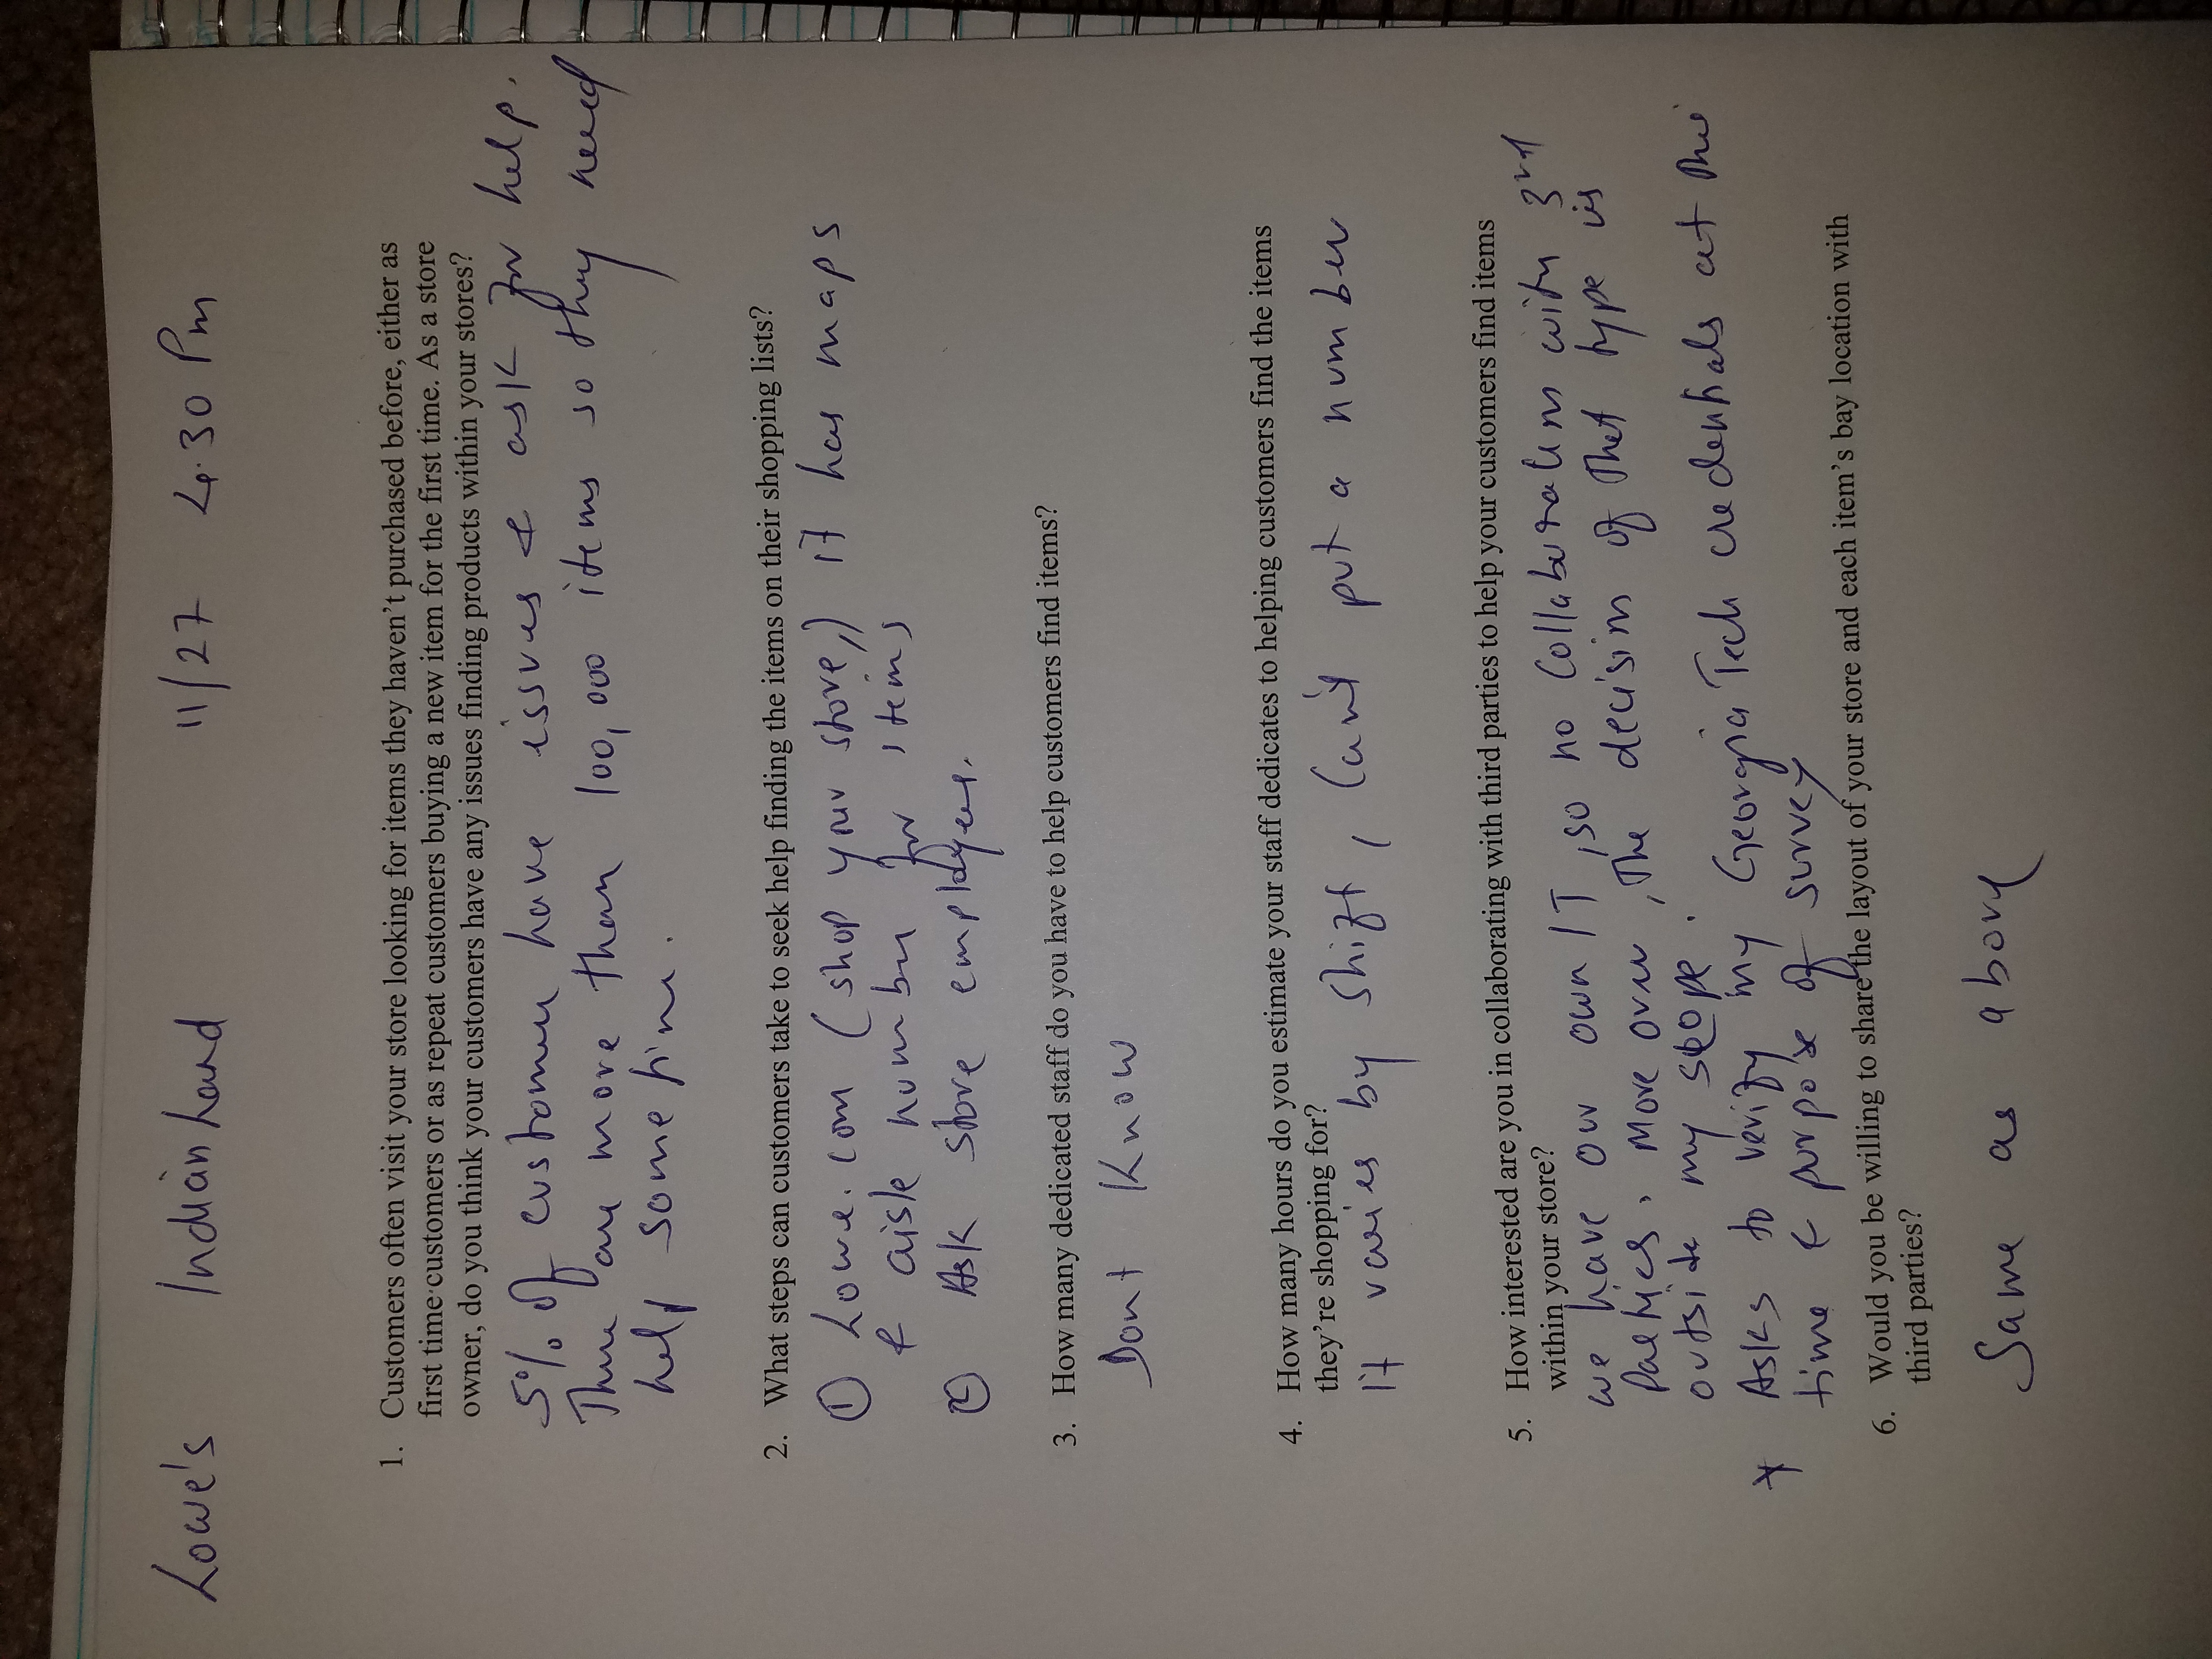 Lowe's Indian Land 11/27 4.30 Pm
1. Customers often visit your store looking for items they haven't purchased before, either as
first time customers or as repeat customers buying a new item for the first time. As a store
owner, do you think your customers have any issues finding products within your stores?
5% of customer have issues & ask for help.
There are more than 100,000 items so they need
help sometime.
2. What steps can customers take to seek help finding the items on their shopping lists?
① Lowe.com (shop your store,) it has maps
& aisle number for items
② Ask store employees.
3. How many dedicated staff do you have to help customers find items?
Dont Know
4. How many hours do you estimate your staff dedicates to helping customers find the items
they're shopping for?
It varies by shift, Can't put a number
5. How interested are you in collaborating with third parties to help your customers find items
within your store?
we have our own IT, so no Collaborations with 3rd
Parties. More over, the decision of that type is
outside my scope.
* Asks to verify my Georgia Tech credentials at this
time & purpose of survey
6. Would you be willing to share the layout of your store and each item's bay location with
third parties?
Same as above